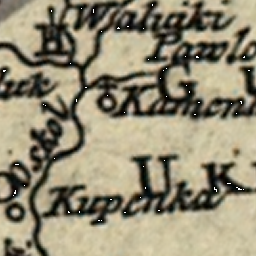 Waluiki
Pawlo
G
Kamen
Oskol
U K
Kupenka